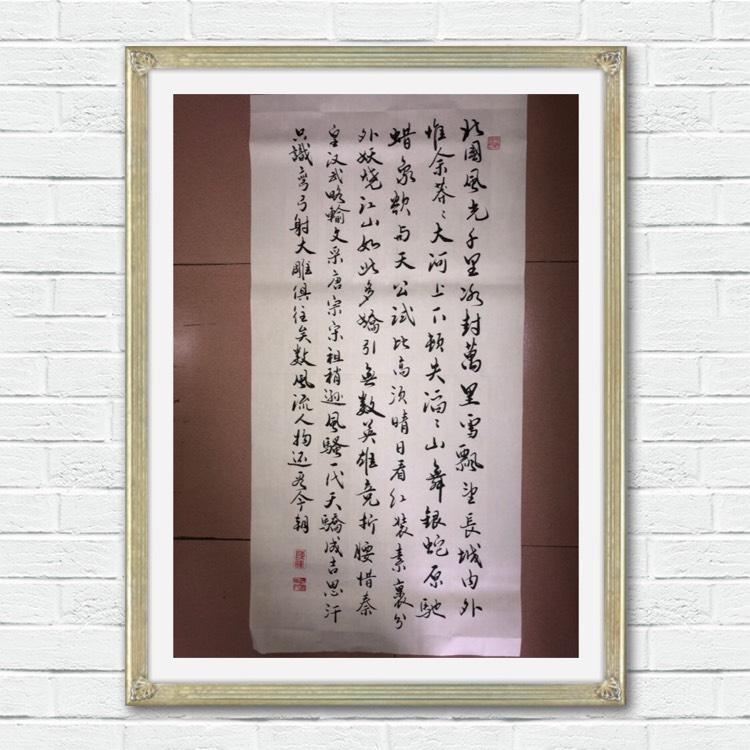 北國風光千里冰封萬里雪飄望長城内外
惟余莽々大河上下顿失滔々山舞銀蛇原馳
蜡象欲与天公試比高须晴日看红装素裹分
外妖娆江山如此多嬌引無数英雄竞折腰惜秦
皇汉武略輸文采唐宗宋祖稍遜風騷一代天驕成吉思汗
只識弯弓射大雕俱往矣数風流人物还看今朝